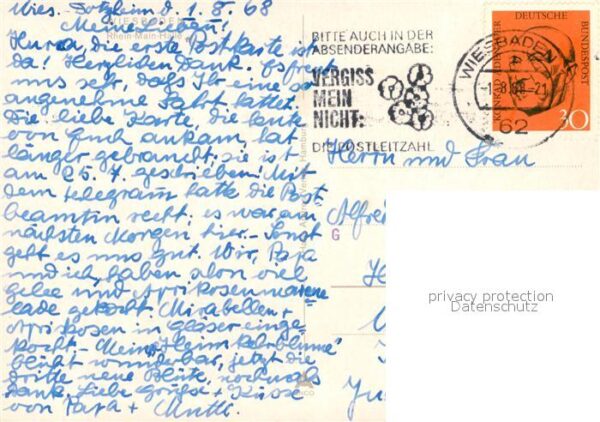 Wies. Dotzheim d. 1.8.68
WIESBADEN
Rhein-Main-Halle
Hurra, die erste Postkarte ist
da! Herzlichen Dank. Es freut
uns sehr, dass Ihr eine so
angenehme Fahrt hattet.
Die liebe Karte, die heute
von Euch ankam, hat
länger gebraucht, sie ist
am 25. 7. geschrieben! Mit
dem Telegramm hatte die Post
beamtin recht, es war am
nächsten Morgen hier. – Sonst
geht es uns gut. Wir, Papa
und ich, haben schon viel
Gelee und Aprikosenmarme
lade gekocht. Mirabellen +
Aprikosen in Gläser einge
kocht. – Meine
blüht wunderbar, jetzt die
dritte neue Blüte, nochmals
Dank. Liebe Grüße + Küsse
von Papa + Mutti.
BITTE AUCH IN DER
ABSENDERANGABE:
VERGISS
MEIN
NICHT:
DIE POSTLEITZAHL
WIESBADEN
-1.8.68-21
62
DEUTSCHE
BUNDESPOST
KONRAD ADENAUER
30
Herrn und Frau
G
privacy protection
Datenschutz